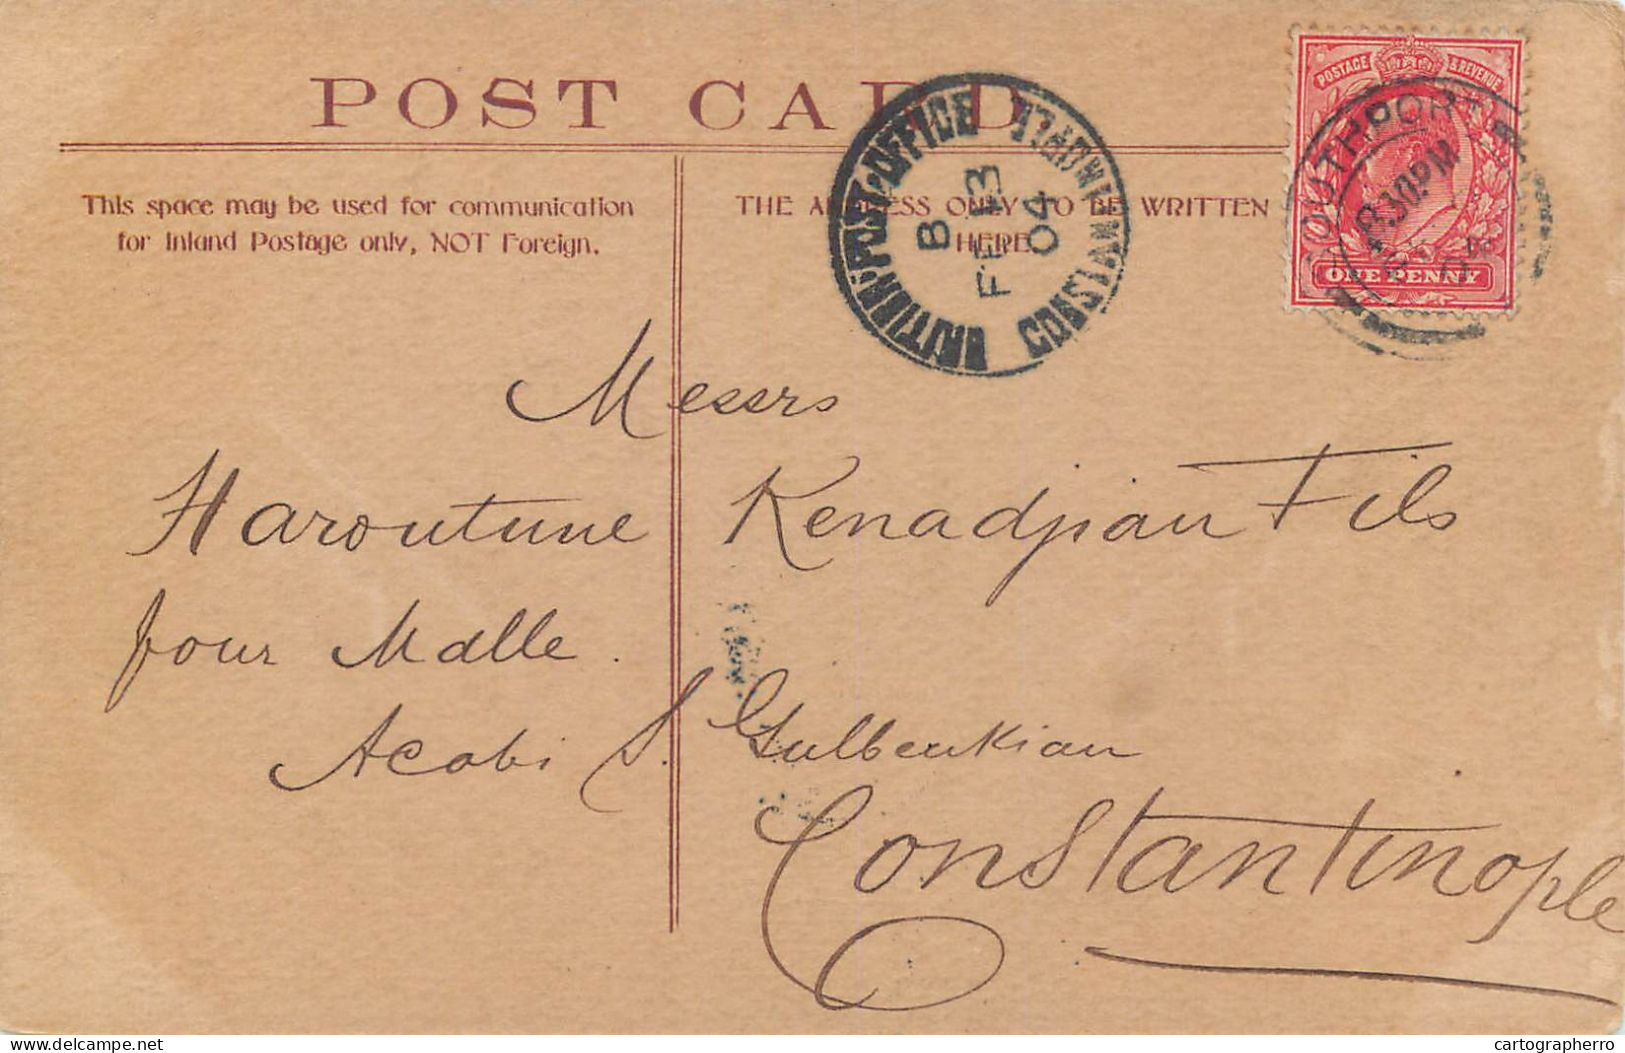 POST CARD
This space may be used for communication
for Inland Postage only, NOT Foreign.
THE ADDRESS ONLY TO BE WRITTEN
HERE
BRITISH POST OFFICE CONSTANTINOPLE
B
FE 13
04
POSTAGE & REVENUE
ONE PENNY
SOUTHPORT
8.30 PM
04
Messrs
Haroutune Kenadjian Fils
pour Mdlle.
Acabi S. Gulbenkian
Constantinople
delcampe.net
cartographerro